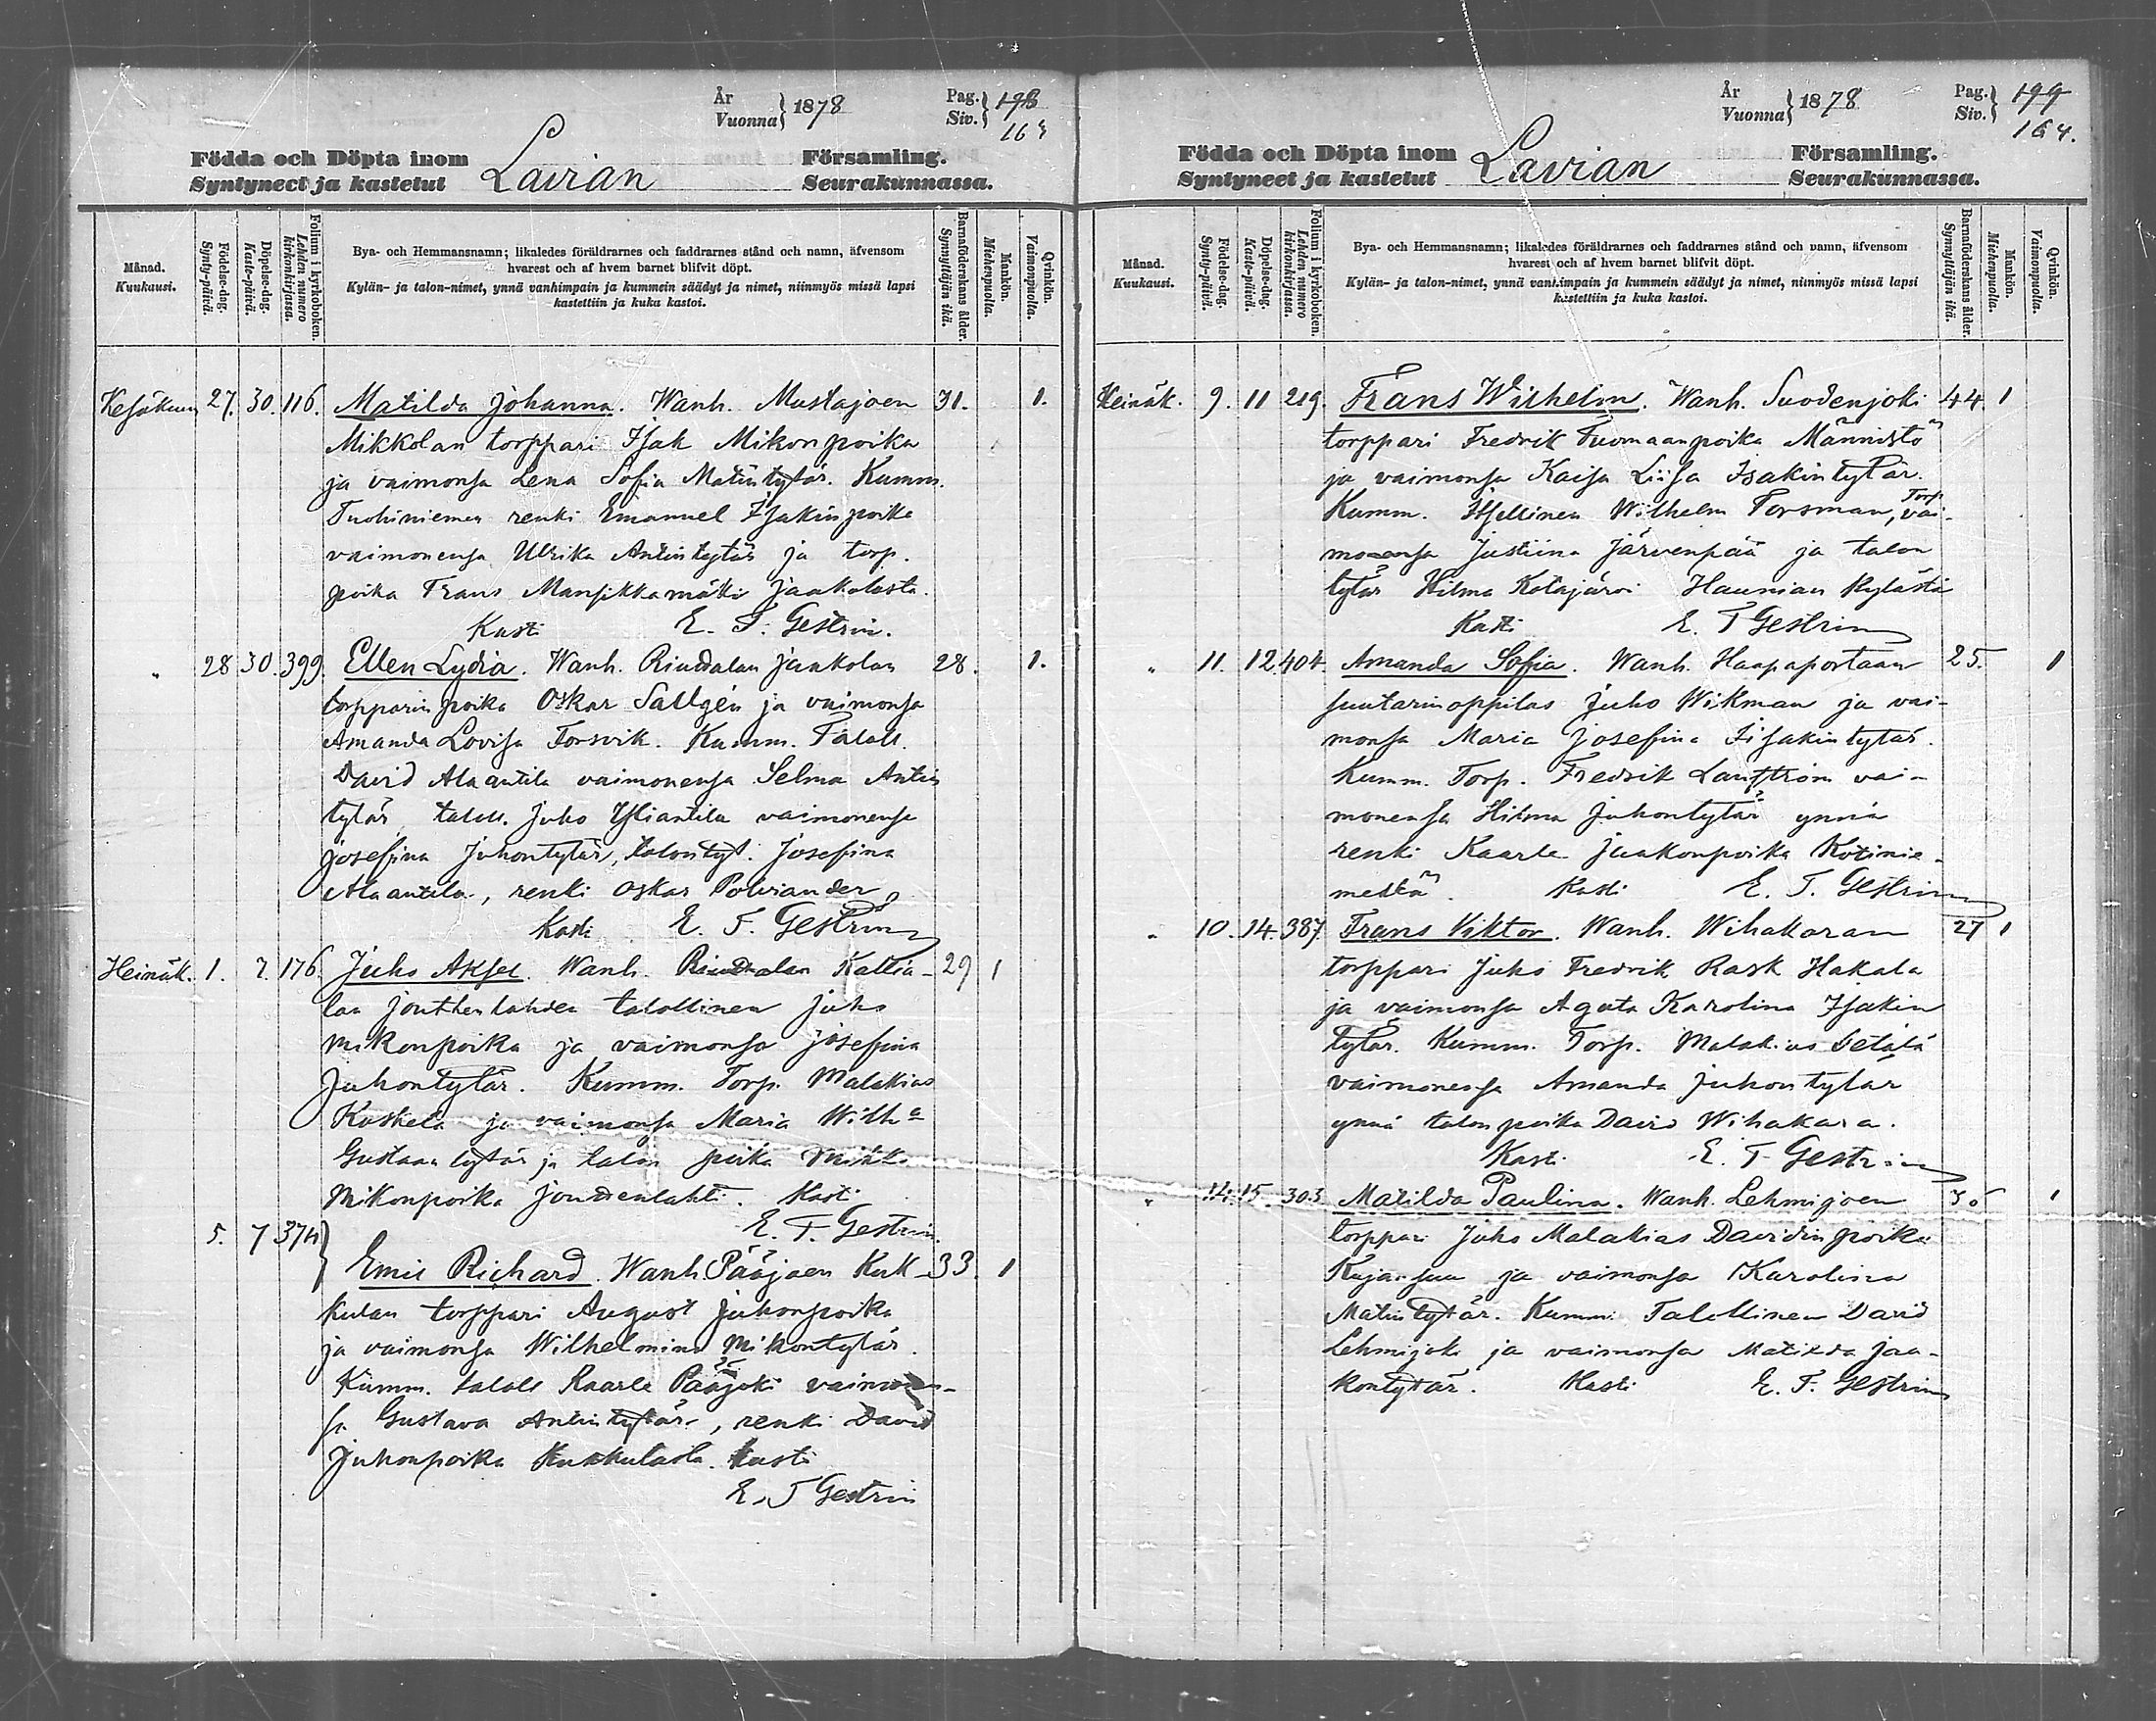 År
Vuonna } 1878
Pag.
Siv. } 198
163
Födda och Döpta inom
Syntyneet ja kastetut
Lavian
Församling.
Seurakunnassa.
Månad.
Kuukausi.
Födelse-dag.
Synty-päivä.
Döpelse-dag.
Kaste-päivä.
Folium i kyrkoboken.
Lehden numero
kirkonkirjassa.
Bya- och Hemmansnamn; likaledes föräldrarnes och faddrarnes stånd och namn, äfvensom
hvarest och af hvem barnet blifvit döpt.
Kylän- ja talon-nimet, ynnä vanhimpain ja kummein säädyt ja nimet, niinmyös missä lapsi
kastettiin ja kuka kastoi.
Barnaföderskans ålder.
Synnyttäjän ikä.
Mankön.
Miehenpuolta.
Qvinkön.
Vaimonpuolta.
Kesäkuun 27. 30. 116. Matilda Johanna. Wanh. Mustajoen 31. 1.
Mikkolan torppari Isak Mikonpoika
ja vaimonsa Lena Sofia Matintytär. Kumm.
Tuohiniemen renki Emanuel Isakinpoika
vaimonensa Ulrika Antintytär ja torp.
poika Frans Mansikkamäki Jaakolasta.
Kasti E. F. Gestrin.
" 28 30. 399. Ellen Lydia. Wanh. Riuddalan Jaakolan 28. 1.
torpparinpoika Oskar Sallgén ja vaimonsa
Amanda Lovisa Forsvik. Kumm. Taloll.
David Alaantila vaimonensa Selma Antin
tytär, taloll. Juho Yliantila vaimonensa
Josefina Juhontytär, talontyt. Josefina
Alaantila, renki Oskar Polviander
Kasti E. F. Gestrin
Heinäk. 1. 7. 176. Juho Aksel. Wanh. Riuddalan Kallia- 29 1
lan Jouthenlahden talollinen Juho
Mikonpoika ja vaimonsa Josefina
Juhontytär. Kumm. Torp. Malakias
Koskela ja vaimonsa Maria Wilhа
Gustaantytär ja talon poika Mikko
Mikonpoika Joudsenlahti. Kasti
E. F. Gestrin.
5. 7 374 } Emil Richard. Wanh. Pääjoen Kuk- 33. 1
kulan torppari August Juhonpoika
ja vaimonsa Wilhelmina Mikontytär.
Kumm. taloll Kaarle Pääjoki vaimonen-
sa Gustava Antintytär, renki David
Juhonpoika Kukkulasta. Kasti
E. F Gestrin
År
Vuonna } 1878
Pag.
Siv. } 199
164.
Födda och Döpta inom
Syntyneet ja kastetut
Lavian
Församling.
Seurakunnassa.
Månad.
Kuukausi.
Födelse-dag.
Synty-päivä.
Döpelse-dag.
Kaste-päivä.
Folium i kyrkoboken.
Lehden numero
kirkonkirjassa.
Bya- och Hemmansnamn; likaledes föräldrarnes och faddrarnes stånd och namn, äfvensom
hvarest och af hvem barnet blifvit döpt.
Kylän- ja talon-nimet, ynnä vanhimpain ja kummein säädyt ja nimet, niinmyös missä lapsi
kastettiin ja kuka kastoi.
Barnaföderskans ålder.
Synnyttäjän ikä.
Mankön.
Miehenpuolta.
Qvinkön.
Vaimonpuolta.
Heinäk. 9. 11 219. Frans Wilhelm. Wanh. Suodenjoki 44. 1
torppari Fredrik Tuomaanpoika Männistö
ja vaimonsa Kaisa Liisa Isakintytär.
Kumm. Itsellinen Wilhelm Forsman, Torp. vai-
monensa Justiina Järvenpää ja talon
tytär Hilma Kotajärvi Haunian kylästä
Kasti E. F Gestrin
" 11. 12. 404. Amanda Sofia. Wanh. Haapaportaan 25. 1
suutarinoppilas Juho Wikman ja vai-
monsa Maria Josefina Iisakintytär.
Kumm. Torp. Fredrik Lanström vai-
monensa Hilma Juhontytär ynnä
renki Kaarle Jaakonpoika Kotinie-
mestä. Kasti E. F. Gestrin
" 10. 14. 387. Frans Viktor. Wanh. Wihakaran 27 1
torppari Juho Fredrik Rask Hakala
ja vaimonsa Agata Karolina Isakin
tytär. Kumm. Torp. Malakias Setälä
vaimonensa Amanda Juhontytär
ynnä talonpoika David Wihakara.
Kasti E. F Gestrin
" 14. 15. 303. Matilda Paulina. Wanh. Lehmijoen 1
torppari Juho Malakias Davidinpoika
Kujansuu ja vaimonsa Karolina
Matintytär. Kumm. Talollinen David
Lehmijoki ja vaimonsa Matilda Jaa-
kontytär. Kasti E. F. Gestrin